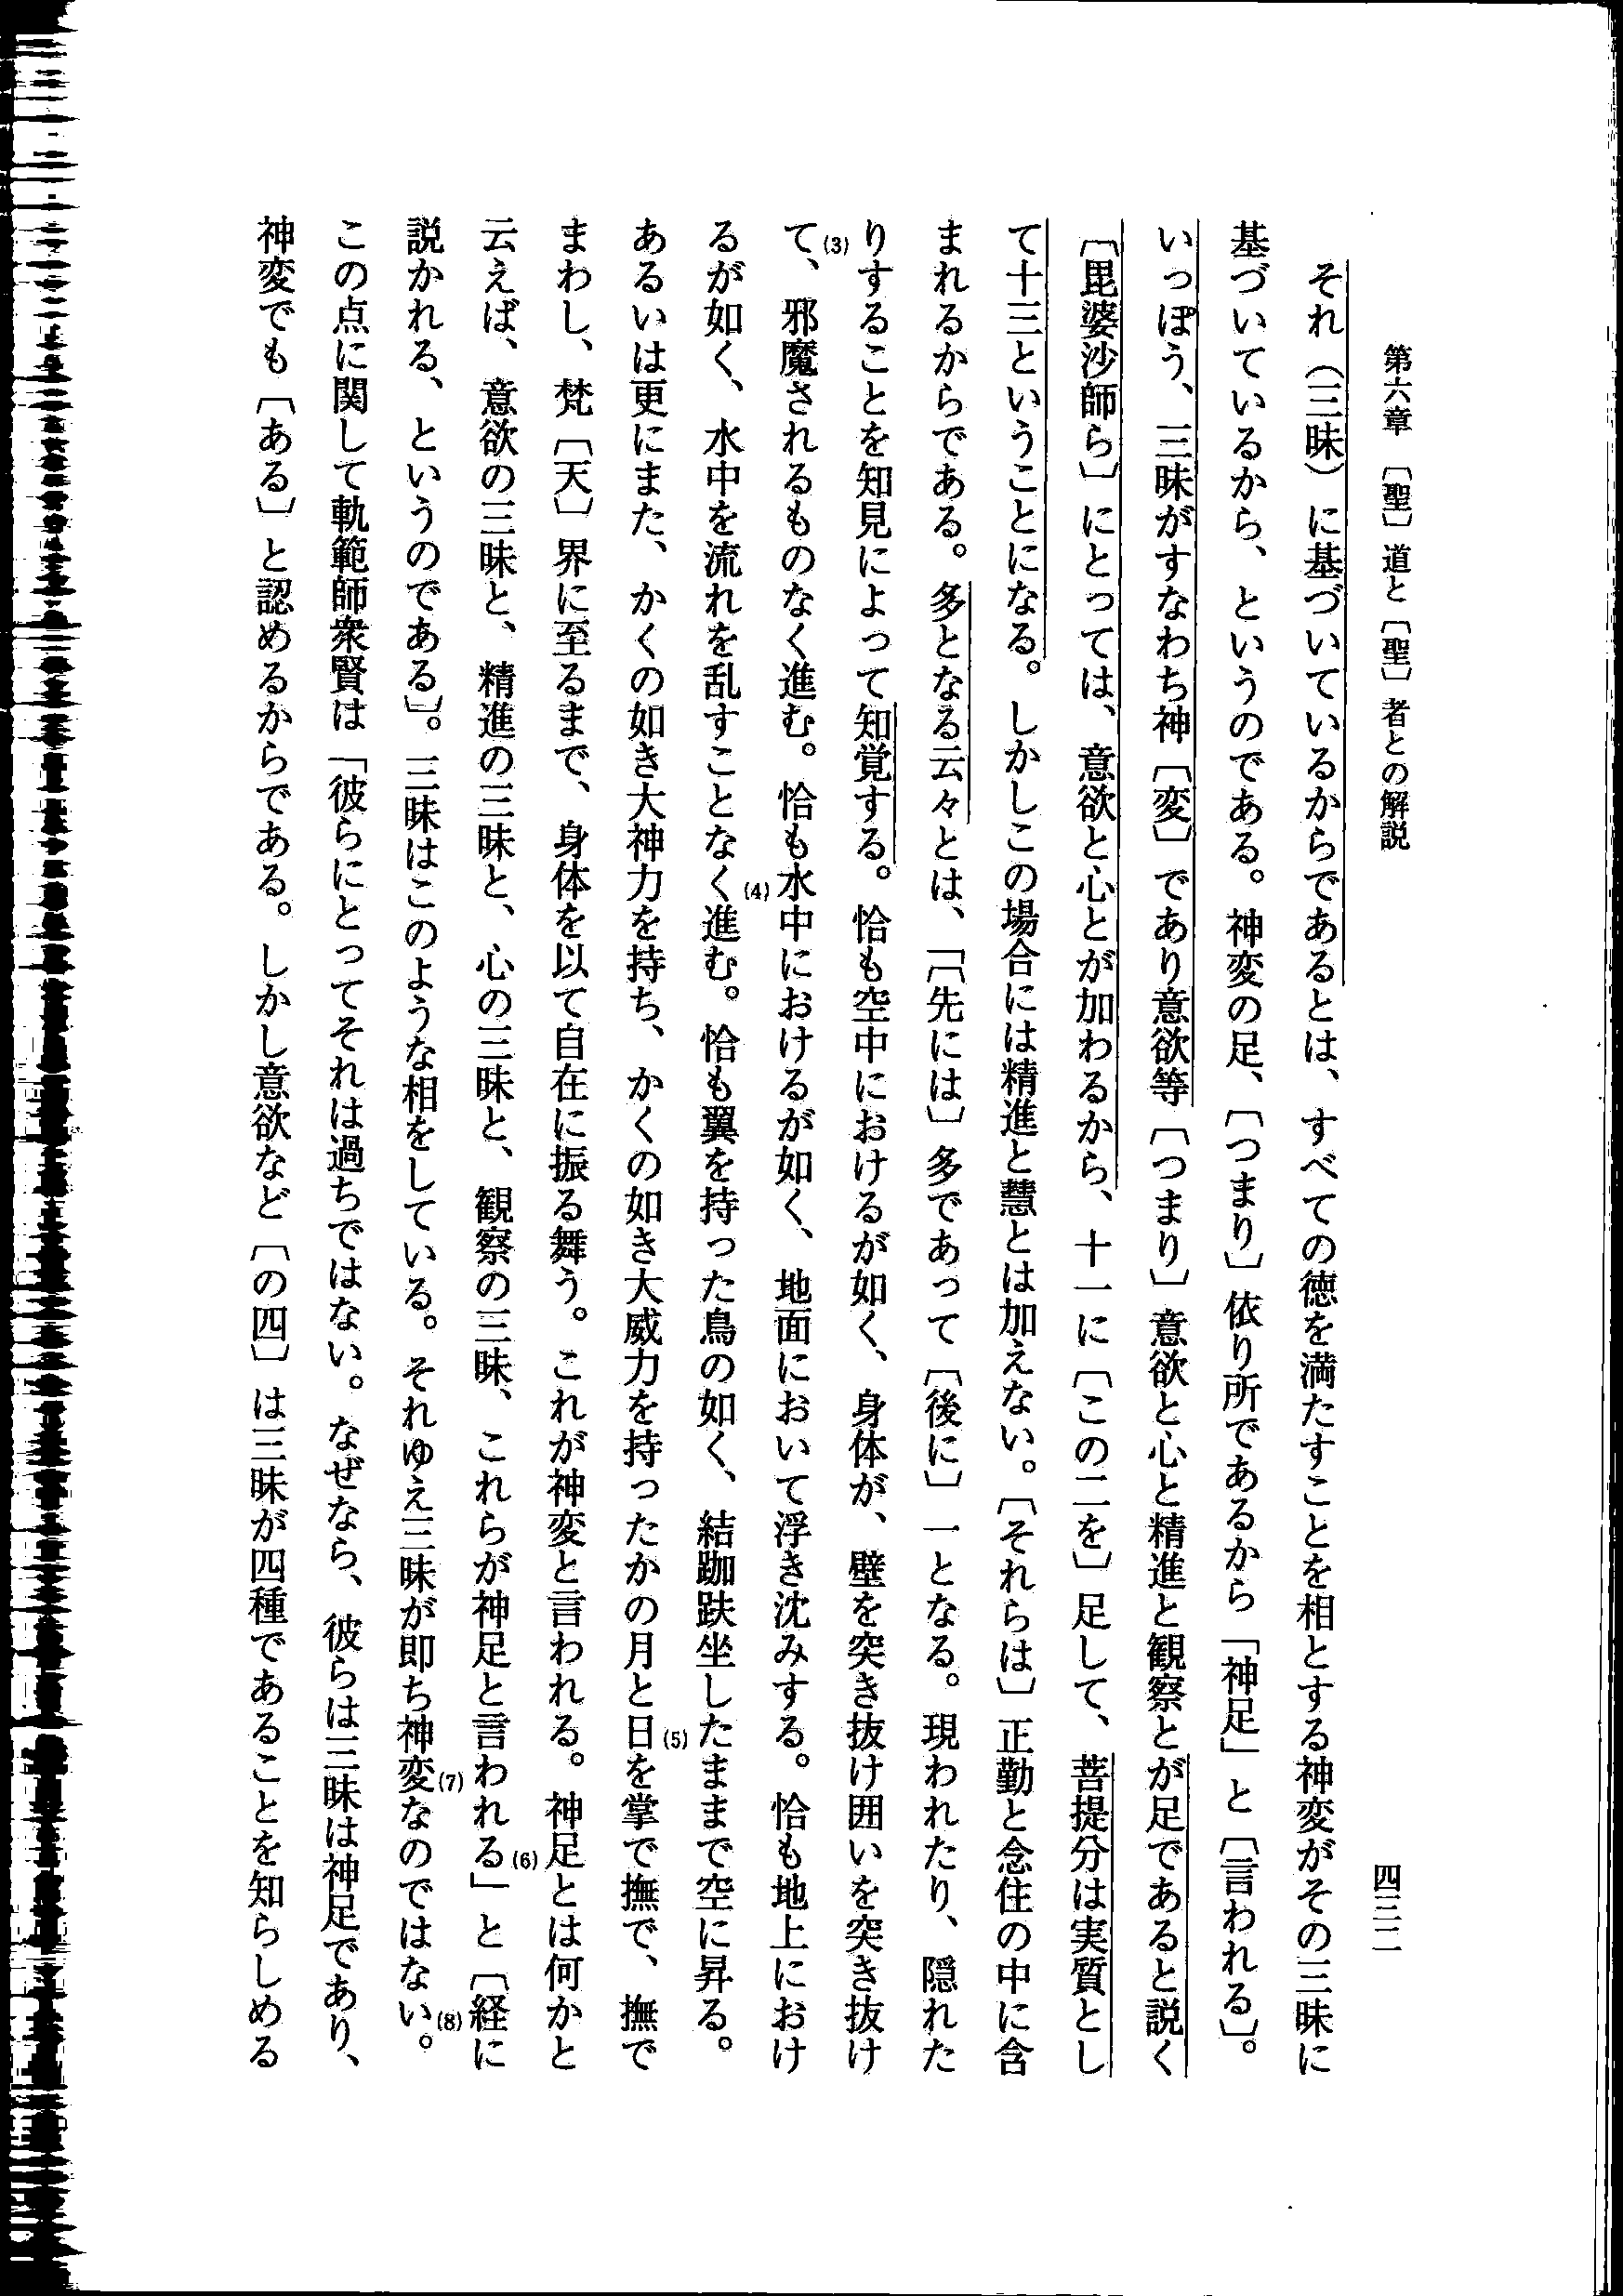 第六章　〔聖〕道と〔聖〕者との解説
四三二
それ（三昧）に基づいているからであるとは、すべての徳を満たすことを相とする神変がその三昧に
基づいているから、というのである。神変の足、〔つまり〕依り所であるから「神足」と〔言われる〕。
いっぽう、三昧がすなわち神〔変〕であり意欲等〔つまり〕意欲と心と精進と観察とが足であると説く
〔毘婆沙師ら〕にとっては、意欲と心とが加わるから、十一に〔この二を〕足して、菩提分は実質とし
て十三ということになる。しかしこの場合には精進と慧とは加えない。〔それらは〕正勤と念住の中に含
まれるからである。多となる云々とは、「〔先には〕多であって〔後に〕一となる。現われたり、隠れた
りすることを知見によって知覚する。恰も空中におけるが如く、身体が、壁を突き抜け囲いを突き抜け
て、(3)邪魔されるものなく進む。恰も水中におけるが如く、地面において浮き沈みする。恰も地上におけ
るが如く、水中を流れを乱すことなく(4)進む。恰も翼を持った鳥の如く、結跏趺坐したままで空に昇る。
あるいは更にまた、かくの如き大神力を持ち、かくの如き大威力を持ったかの月と日(5)を掌で撫で、撫で
まわし、梵〔天〕界に至るまで、身体を以て自在に振る舞う。これが神変と言われる。神足とは何かと
云えば、意欲の三昧と、精進の三昧と、心の三昧と、観察の三昧、これらが神足と言われる(6)」と〔経に
説かれる、というのである〕。三昧はこのような相をしている。それゆえ三昧が即ち神変(7)なのではない(8)。
この点に関して軌範師衆賢は「彼らにとってそれは過ちではない。なぜなら、彼らは三昧は神足であり、
神変でも〔ある〕と認めるからである。しかし意欲など〔の四〕は三昧が四種であることを知らしめる